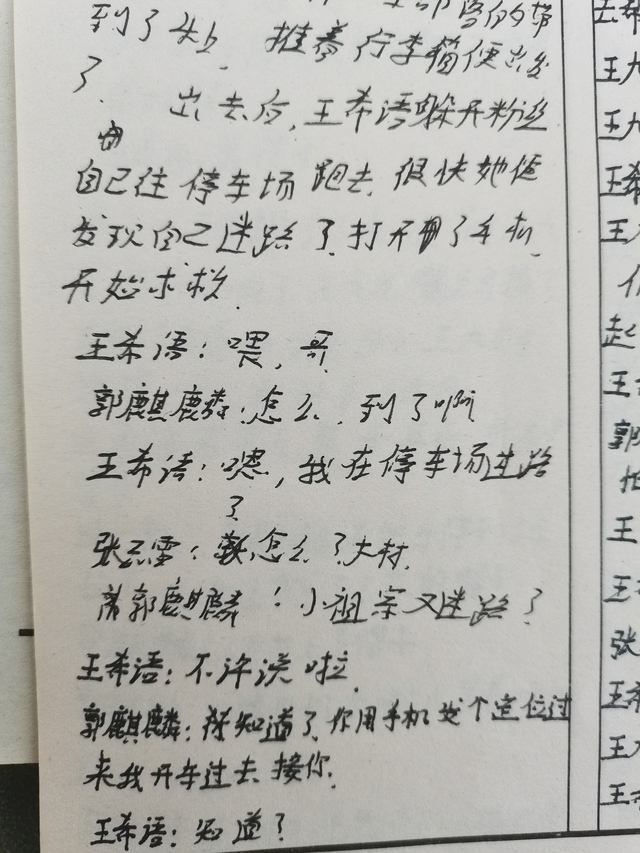 到了处，推着行李箱便出发
了.
出去后，王希语躲开粉丝
自己往停车场跑去.很快她便
发现自己迷路了.打开了手机.
开始求救.
王希语：喂，哥.
郭麒麟：怎么.到了啊
王希语：嗯，我在停车场迷路
了
张云雷：怎么了大林.
郭麒麟：小祖宗又迷路了
王希语：不许说啦.
郭麒麟：知道了.你用手机发个定位过
来我开车过去接你.
王希语：知道了
去希
王九
王九
王希
王九
起
王
郭
王
王
张
王希
王九
王